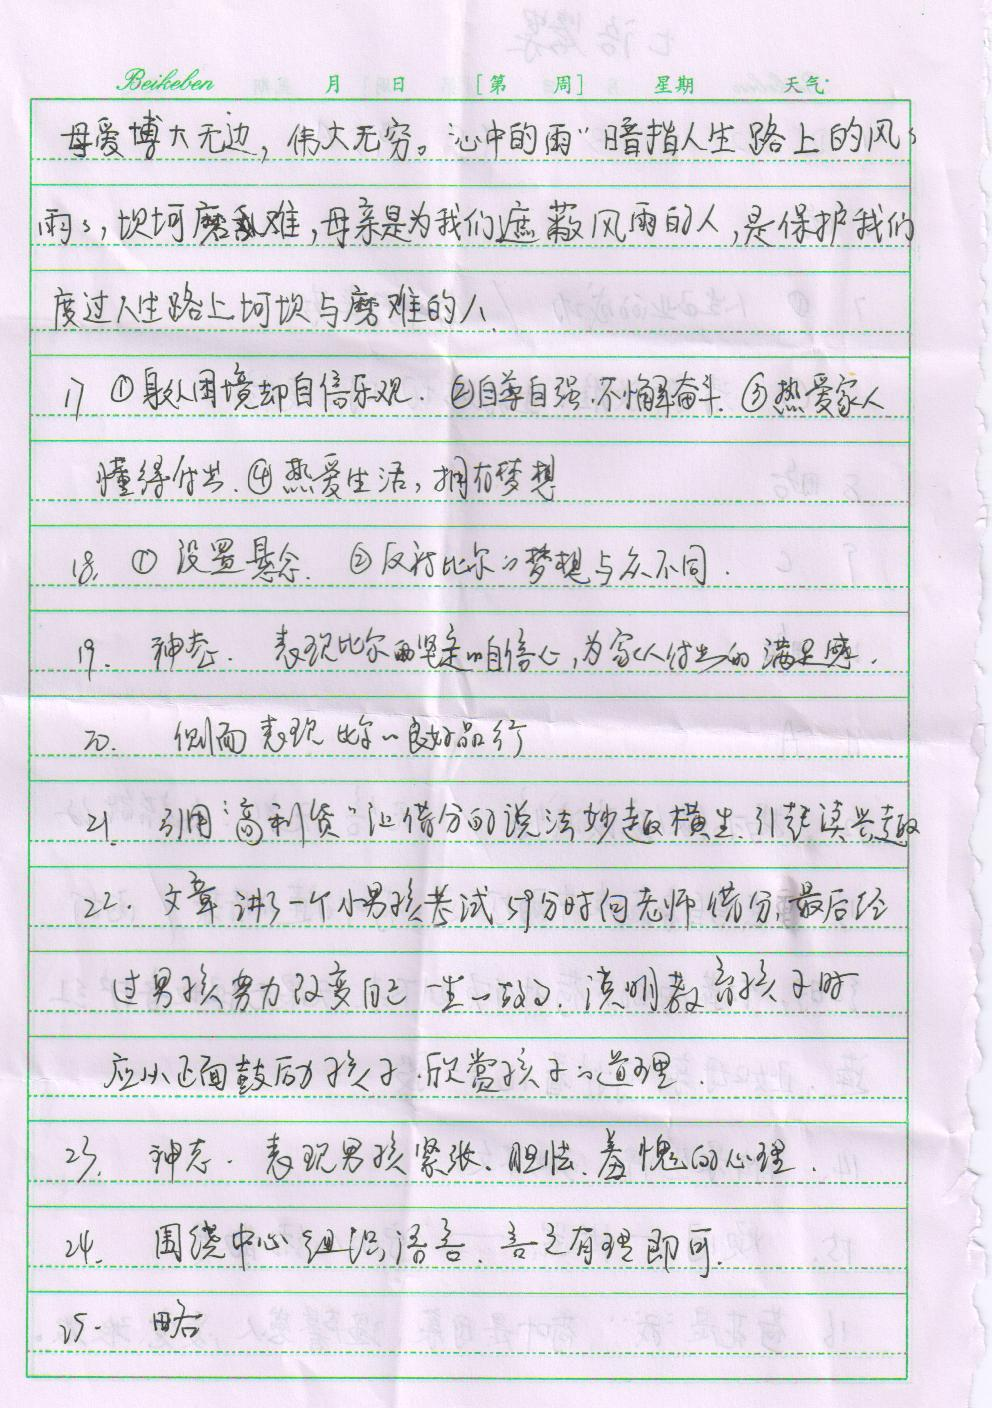 Beikeben 月 日 [第 周] 星期 天气
母爱博大无边，伟大无穷。"心中的雨"暗指人生路上的风
雨，坎坷磨难，母亲是为我们遮蔽风雨的人，是保护我们
度过人生路上坷坎与磨难的人.
17 ①身处困境却自信乐观. ②自尊自强.不懈奋斗. ③热爱家人
懂得付出. ④热爱生活，拥有梦想
18. ① 设置悬念. ② 反衬比尔的梦想与众不同.
19. 神态. 表现比尔的坚定的自信心，为家人付出的满足感.
20. 侧面表现比尔的良好品行
21. 引用"高利贷"让借分的说法妙趣横生.引起读兴趣
22. 文章讲了一个小男孩考试59分时向老师借分，最后经
过男孩努力改变自己一生的故事. 说明教育孩子时
应从正面鼓励孩子.欣赏孩子的道理.
23. 神态. 表现男孩紧张、胆怯、羞愧的心理.
24. 围绕中心组织语言. 言之有理即可.
25. 略